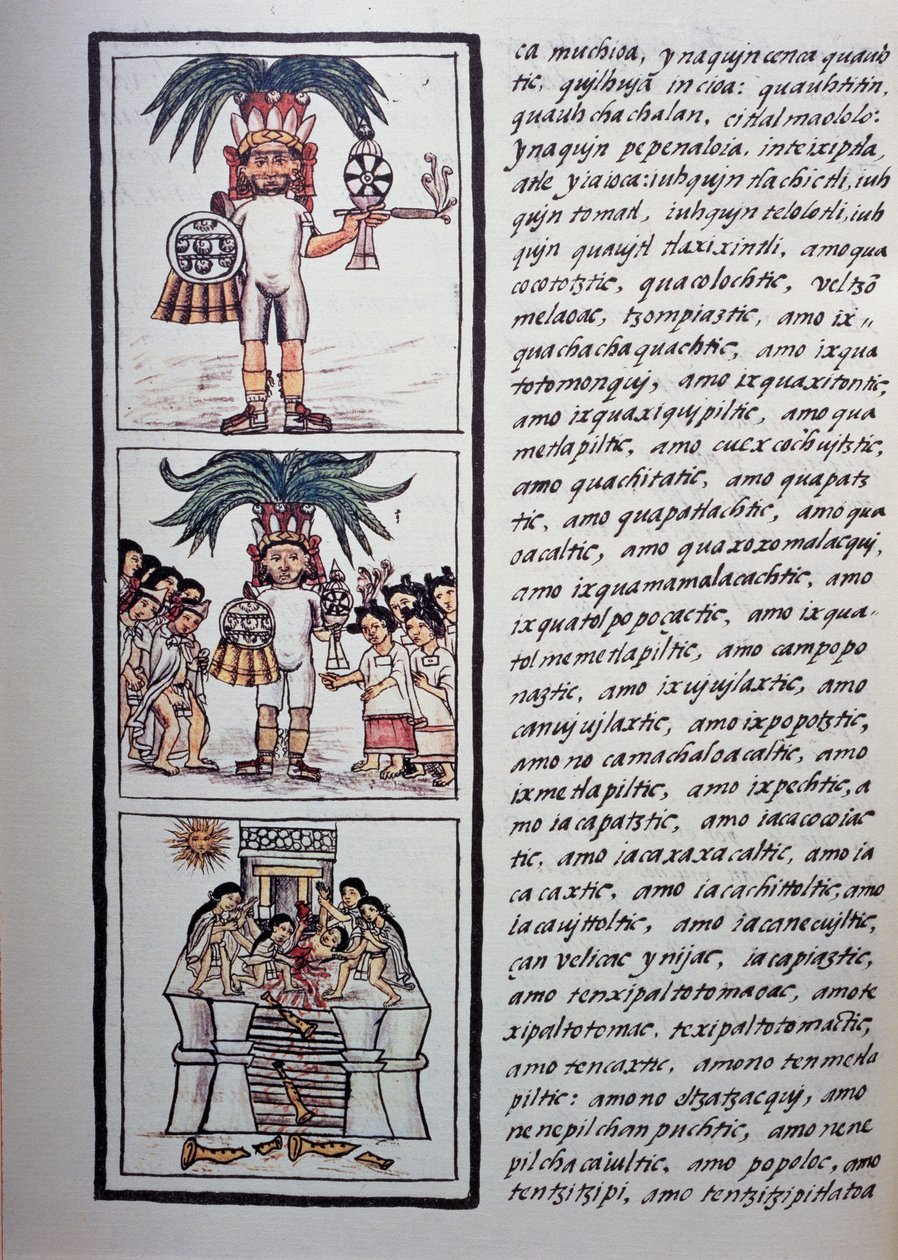 ca muchioa, ynaquin cenca quauh
tic, quijlhujā in cioa: quauhtitin,
quauhchachalan, citlalmaololo:
ynaquijn pepenaloia, inteixiptla,
atle yiaioca: iuhquijn tlachictli, iuh
quijn tomatl, iuhquijn telolotli, iuh
quijn quaujtl tlaxixintli, amo qua
cocototztic, quacolochtic, veltzō
melaoac, tzompiaztic, amo ix„
quachachaquachtic, amo ixqua
totomonquj, amo ixquaxitontic,
amo ixquaxiqujpiltic, amo qua
metlapiltic, amo cuexcochujtztic,
amo quachitatic, amo quapatz
tic, amo quapatlachtic, amo qua
oacaltic, amo quaxoxomalacquj,
amo ixquamamalacachtic, amo
ixquatolpopoçactic, amo ixqua-
tolmemetlapiltic, amo campopo
naztic, amo ixujujlaxtic, amo
canujujlaxtic, amo ixpopotztic,
amo no camachaloacaltic, amo
ixmetlapiltic, amo ixpechtic, a
mo iacapatztic, amo iacacocoiac
tic, amo iacaxaxacaltic, amo ia
cacaxtic, amo iacachittoltic, amo
iacaujttoltic, amo iacanecujltic,
çan velicac ynijac, iacapiaztic,
amo tenxipaltotomaoac, amo te
xipaltotomac, texipaltotomactic,
amo tencaxtic, amono tenmetla
piltic: amono eltzatzacquj, amo
nenepilchanpuchtic, amo nene
pilchacaiultic, amo popoloc, amo
tentzitzipi, amo tentzitzipitlatoa